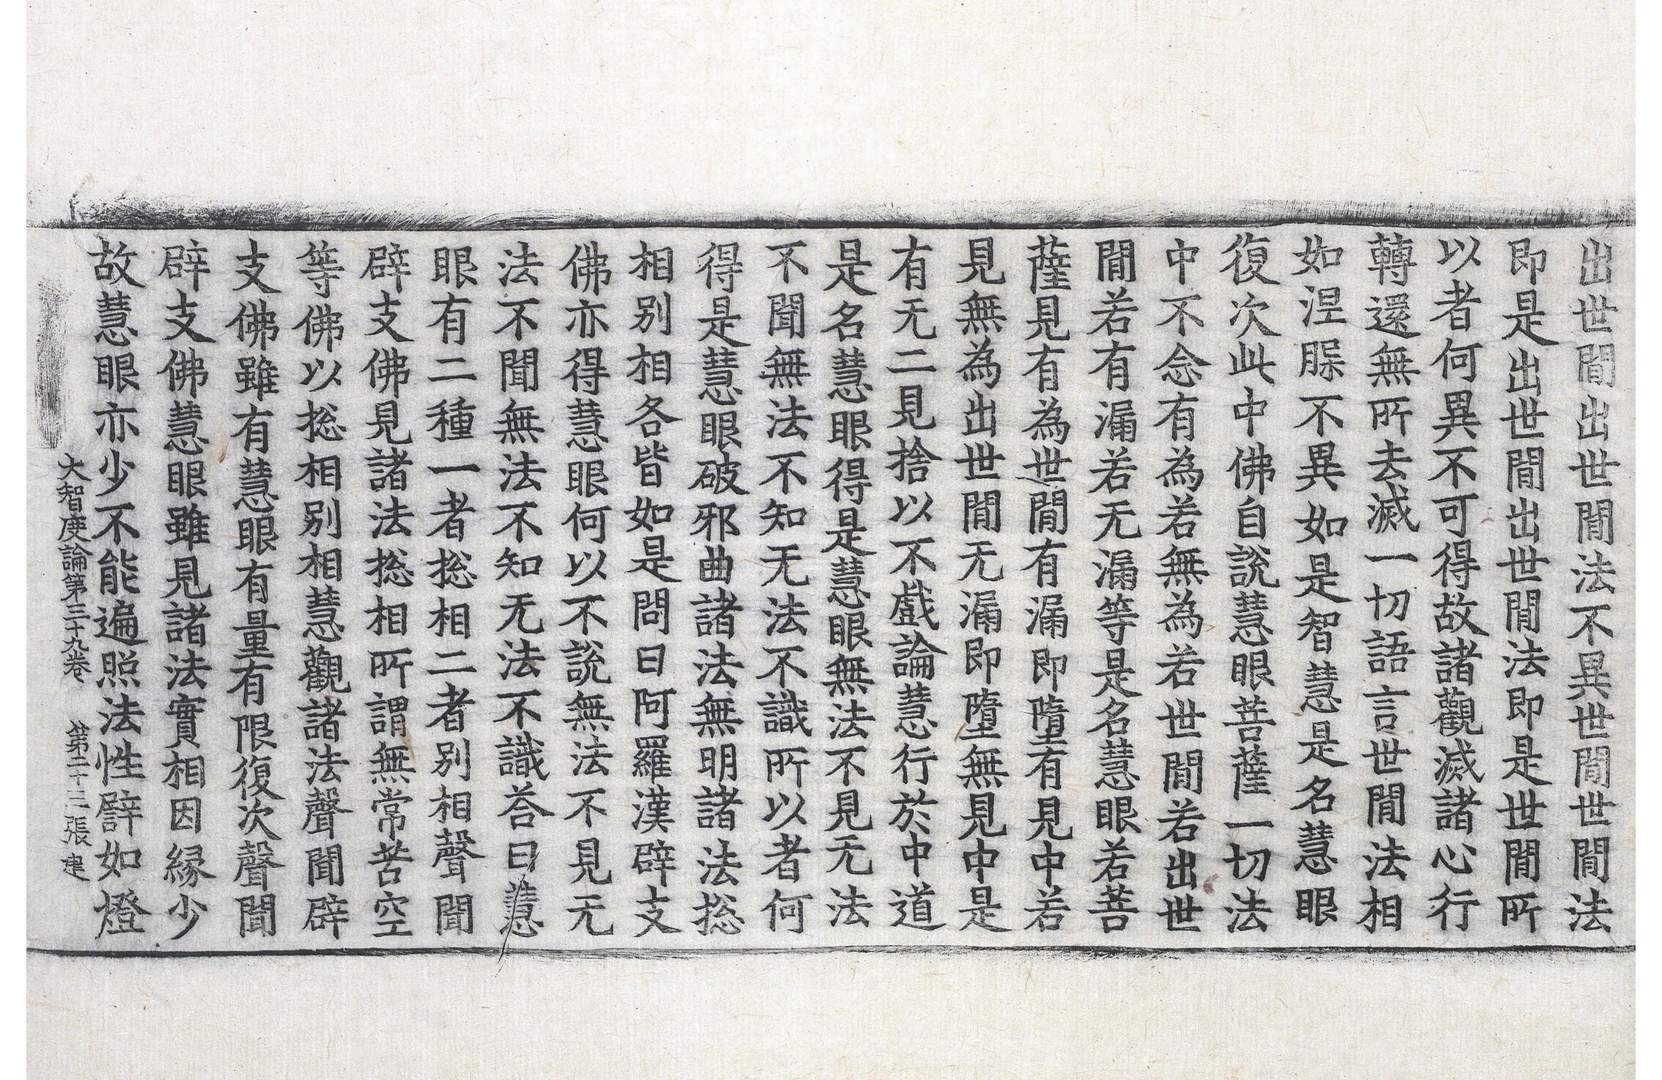 出世間出世間法不異世間世間法
即是出世間出世間法即是世間所
以者何異不可得故諸觀滅諸心行
轉還無所去滅一切語言世間法相
如涅脲不異如是智慧是名慧眼
復次此中佛自說慧眼菩薩一切法
中不念有為若無為若世間若出世
間若有漏若无漏等是名慧眼若菩
薩見有為世間有漏即墮有見中若
見無為出世間无漏即墮無見中是
有无二見捨以不戲論慧行於中道
是名慧眼得是慧眼無法不見无法
不聞無法不知无法不識所以者何
得是慧眼破邪曲諸法無明諸法捴
相别相各皆如是問曰阿羅漢辟支
佛亦得慧眼何以不說無法不見无
法不聞無法不知无法不識荅曰慧
眼有二種一者捴相二者别相聲聞
辟支佛見諸法捴相所謂無常苦空
等佛以捴相别相慧觀諸法聲聞辟
支佛雖有慧眼有量有限復次聲聞
辟支佛慧眼雖見諸法實相因縁少
故慧眼亦少不能遍照法性譬如燈
大智度論第三十九卷 第二十三張 建